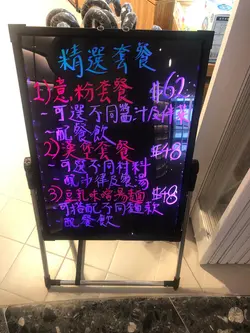 精選套餐
1)意粉套餐 $62
-可選不同醬汁及伴菜
-配餐飲
2)漢堡套餐 $48
-可選不同材料
-配沙律及餐湯
3)豆乳味噌湯麵 $48
-可搭配不同麵款
-配餐飲